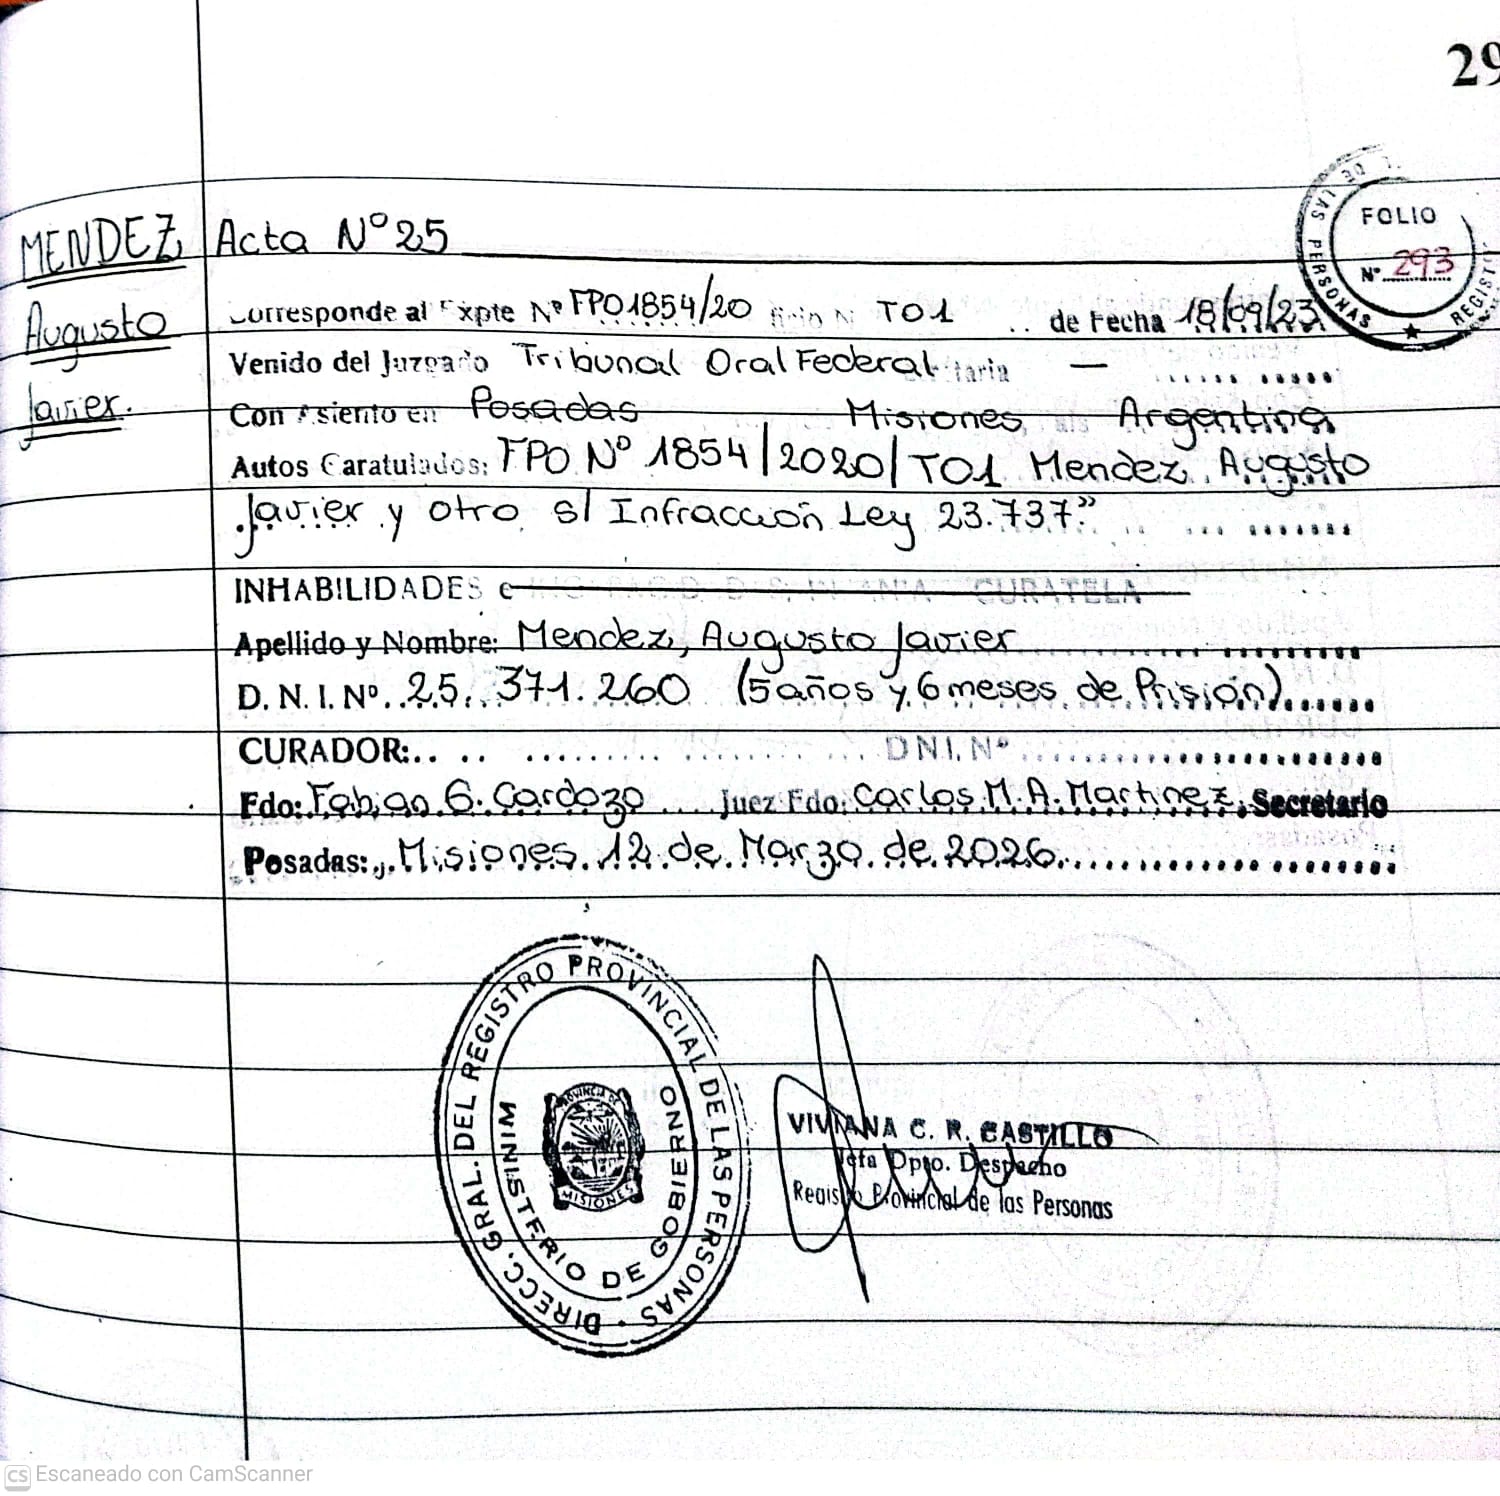 29
MENDEZ
Augusto
Javier.
Acta Nº 25
FOLIO
Nº 293
DE LAS PERSONAS ★ REGISTRO
Corresponde al Expte Nº FPO1854/20 TO1 de Fecha 18/09/23
Venido del Juzgado Tribunal Oral Federal taria —
Con Asiento en Posadas Misiones Argentina
Autos Caratulados: FPO Nº 1854/2020/TO1 Mendez, Augusto
Javier y otro s/ Infracción Ley 23.737"
INHABILIDADES e CURATELA
Apellido y Nombre: Mendez, Augusto Javier
D. N. I. Nº 25.371.260 (5 años y 6 meses de Prisión)
CURADOR: DNI. Nº
Fdo: Fabian G. Cardozo Juez Fdo: Carlos M. A. Martinez. Secretario
Posadas: Misiones 12 de Marzo de 2026
DIRECC. GRAL. DEL REGISTRO PROVINCIAL DE LAS PERSONAS
MINISTERIO DE GOBIERNO
PROVINCIA DE
MISIONES
VIVIANA C. R. CASTILLO
Jefa Dpto. Despacho
Registro Provincial de las Personas
CS Escaneado con CamScanner